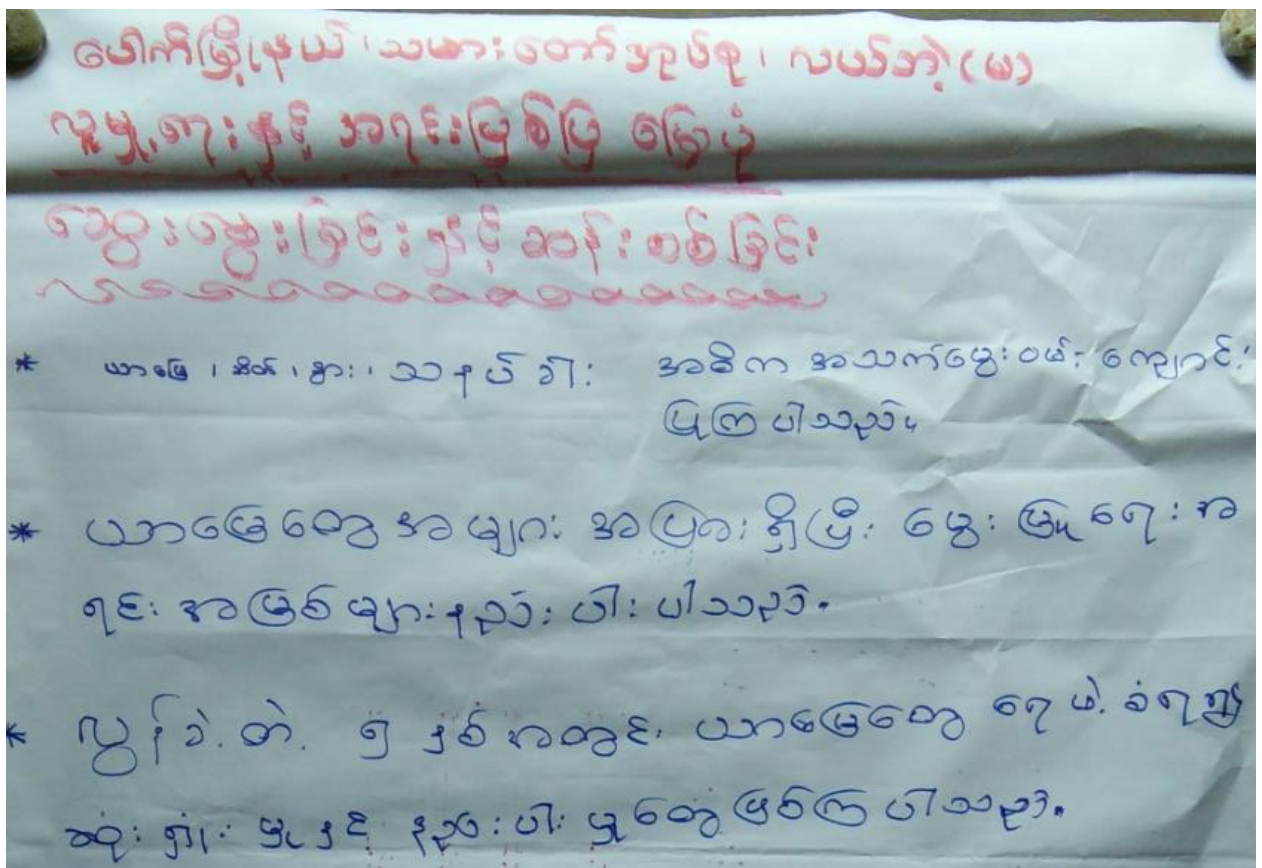 ပေါက်မြို့နယ်၊ သမားတော်အုပ်စု၊ လယ်ဘဲ့(မ)
လူမှုရေးနှင့် အရင်းမြစ်ပြ မြေပုံ
ဆွေးနွေးခြင်းနှင့်ဆန်းစစ်ခြင်း
* ယာမြေ၊ ဆိတ်၊ နွား၊ သနပ်ခါး အဓိက အသက်မွေးဝမ်းကျောင်း
ပြုကြပါသည်။
* ယာမြေတွေ အများ အပြား ရှိပြီး မွေးမြူရေး အ
ရင်း အမြစ် များ နည်း ပါး ပါသည်။
* လွန်ခဲ့တဲ့ ၅ နှစ်အတွင်း ယာမြေတွေ ရေ ဖဲ့ ခံရ၍
ဆုံး ရှုံး မှုနှင့် နည်း ပါး မှုတွေ ဖြစ်ကြ ပါသည်။